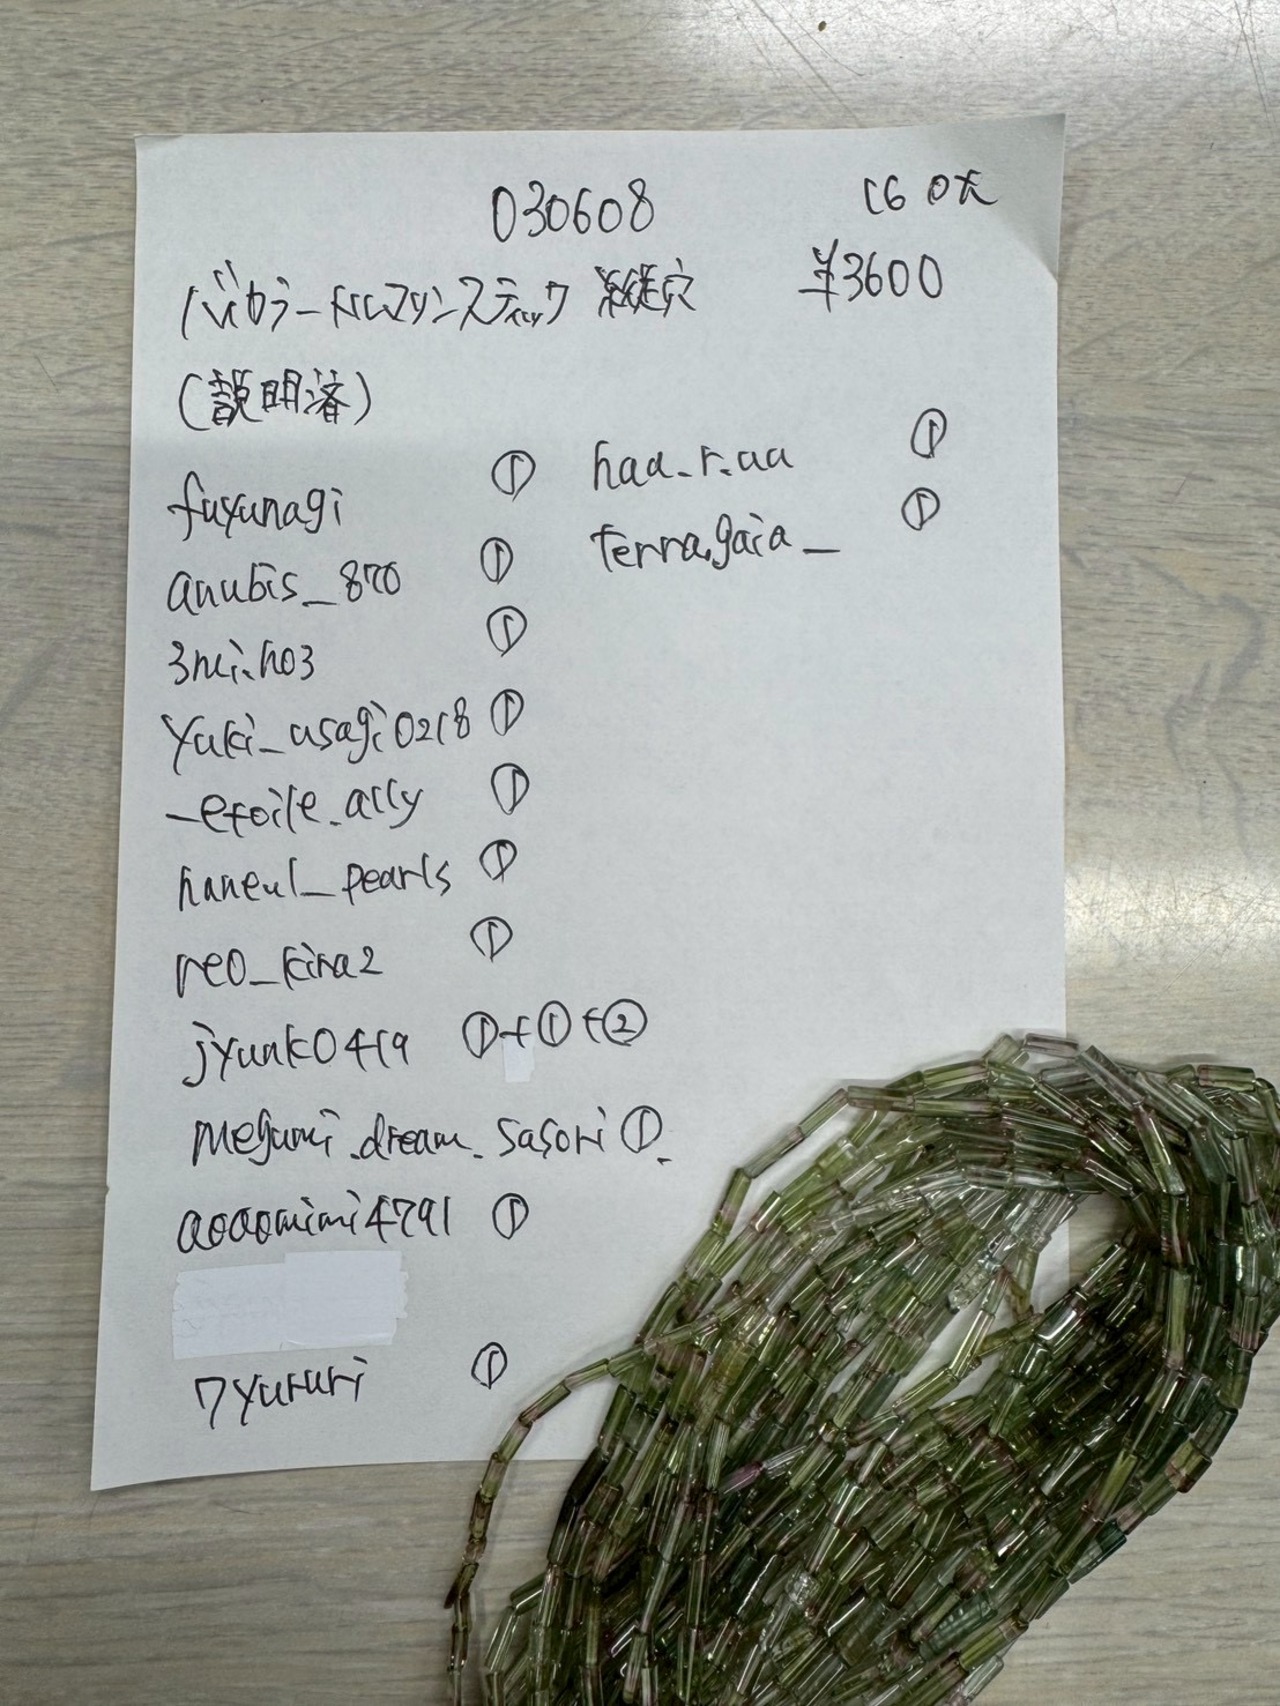 030608
160本
バイカラートルマリンスティック 縦穴
¥3600
(説明済)
fuyunagi ①
anubis_870 ①
3mi.ho3 ①
yuki_usagi0218 ①
_etoile.ally ①
haneul_pearls ①
reo_kira2 ①
jyunk0419 ①+①+②
megumi.dream.sasori ①
aoaomimi4791 ①
7yururi ①
haa.r.aa ①
terra.gaia_ ①